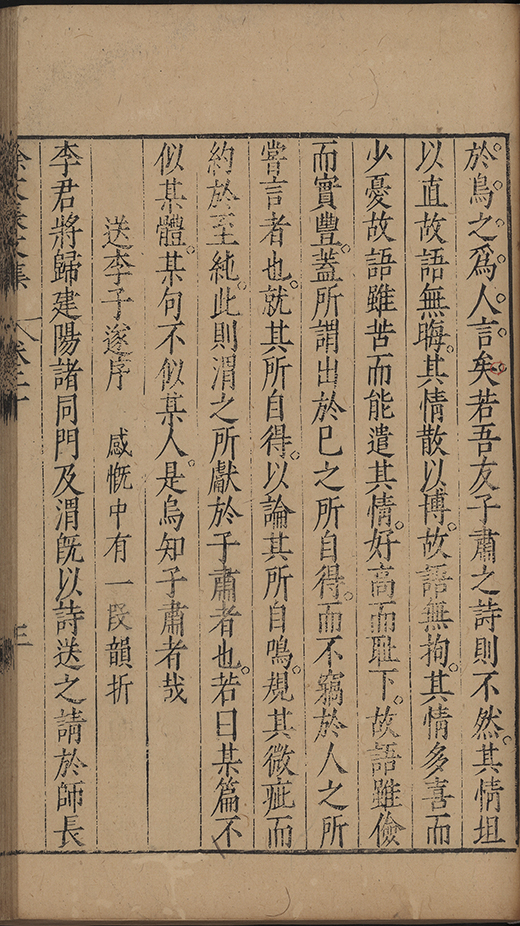 於鳥之爲人言矣若吾友子肅之詩則不然。其情坦
以直故語無晦。其情散以博。故語無拘。其情多喜而
少憂故語雖苦而能遣其情。好高而恥下。故語雖儉
而實豐。蓋所謂出於已之所自得。而不竊於人之所
嘗言者也。就其所自得。以論其所自鳴。規其微疵而
約於至純。此則渭之所獻於子肅者也。若曰某篇不
似某體。某句不似某人。是烏知子肅者哉
送李子遂序 感慨中有一段韻折
李君將歸建陽諸同門及渭旣以詩送之請於師長
徐文長文集 卷二十 三